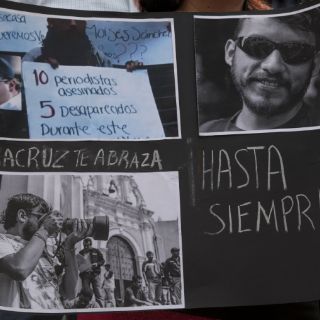 Moises Sanchez
???
10 periodistas
asesinados
5 Desaparecidos
Durante este
ACRUZ TE ABRAZA
HASTA
SIEMPR